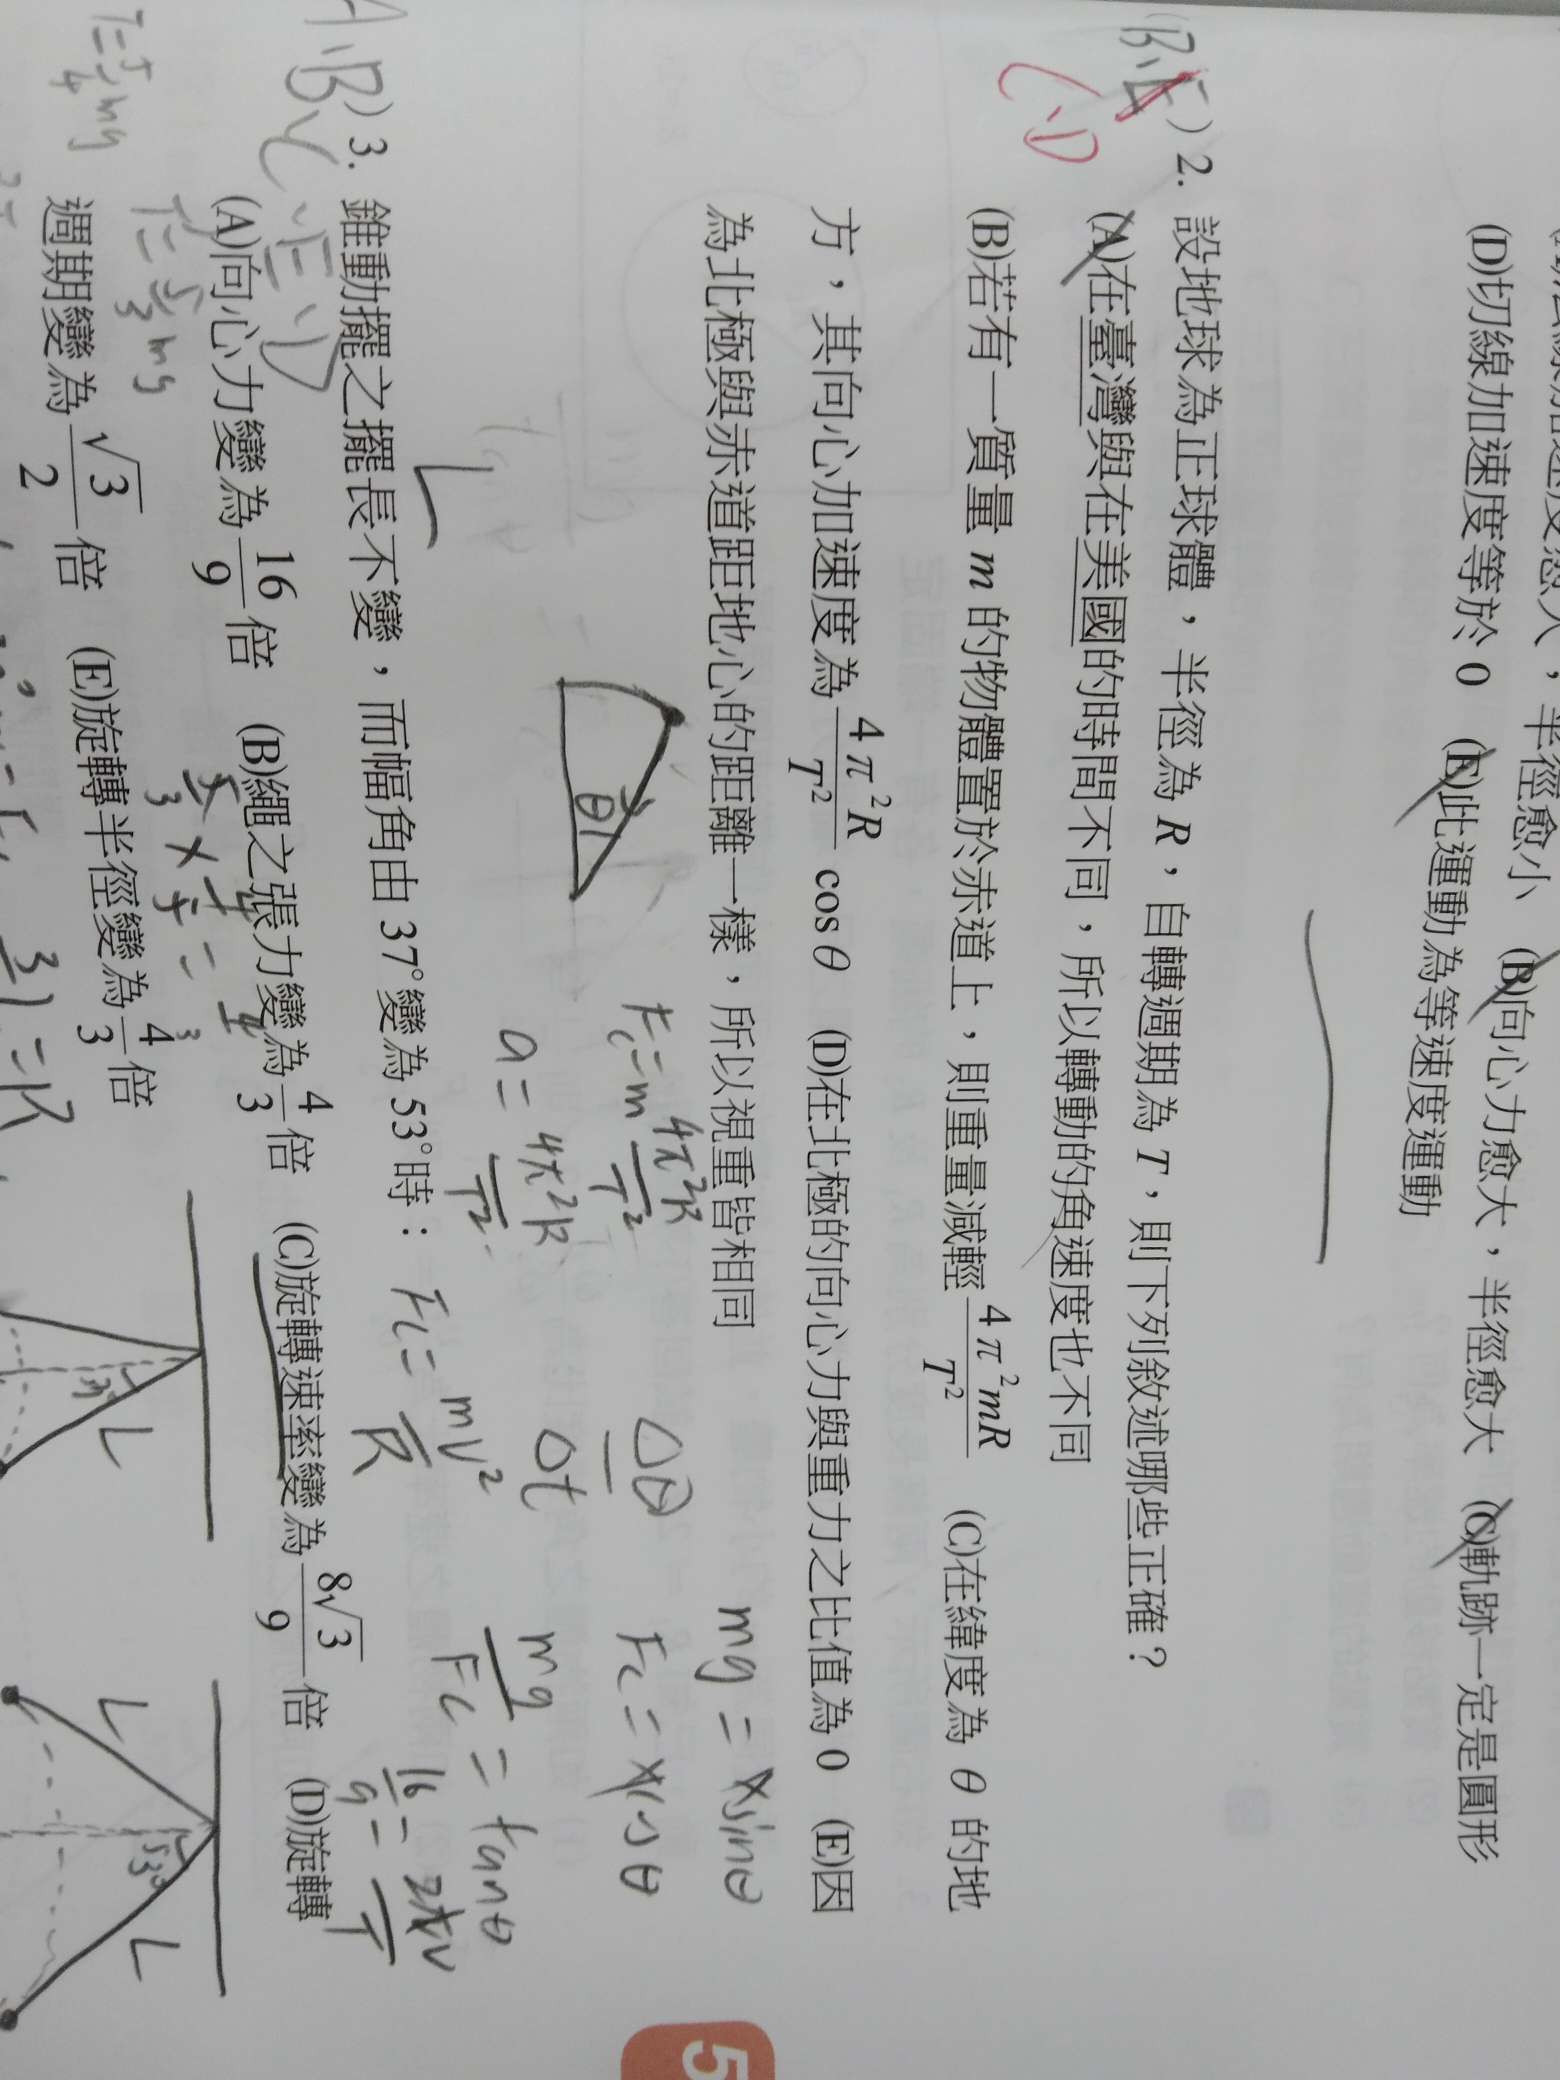 (D)切線加速度等於 0 (E)此運動為等速度運動
(B)向心力愈大,半徑愈大 (C)軌跡一定是圓形
(B、E) 2. 設地球為正球體,半徑為 R,自轉週期為 T,則下列敘述哪些正確?
C、D
(A)在臺灣與在美國的時間不同,所以轉動的角速度也不同
(B)若有一質量 m 的物體置於赤道上,則重量減輕 4π²mR/T² (C)在緯度為 θ 的地
方,其向心加速度為 4π²R/T² cosθ (D)在北極的向心力與重力之比值為 0 (E)因
為北極與赤道距地心的距離一樣,所以視重皆相同
θ
Fc = m 4π²R/T²
a = 4π²R/T²
Δθ/Δt
mg = x sinθ
Fc = x cosθ
mg/Fc = tanθ
3. 錐動擺之擺長不變,而幅角由 37°變為 53°時:
Fc = mv²/R
(A)向心力變為 16/9 倍 (B)繩之張力變為 4/3 倍 (C)旋轉速率變為 8√3/9 倍 (D)旋轉
週期變為 √3/2 倍 (E)旋轉半徑變為 4/3 倍
T = 5/4 mg
T = 5/3 mg
5/3 × 4/5 = 4/3
37° L
L 53° L
5